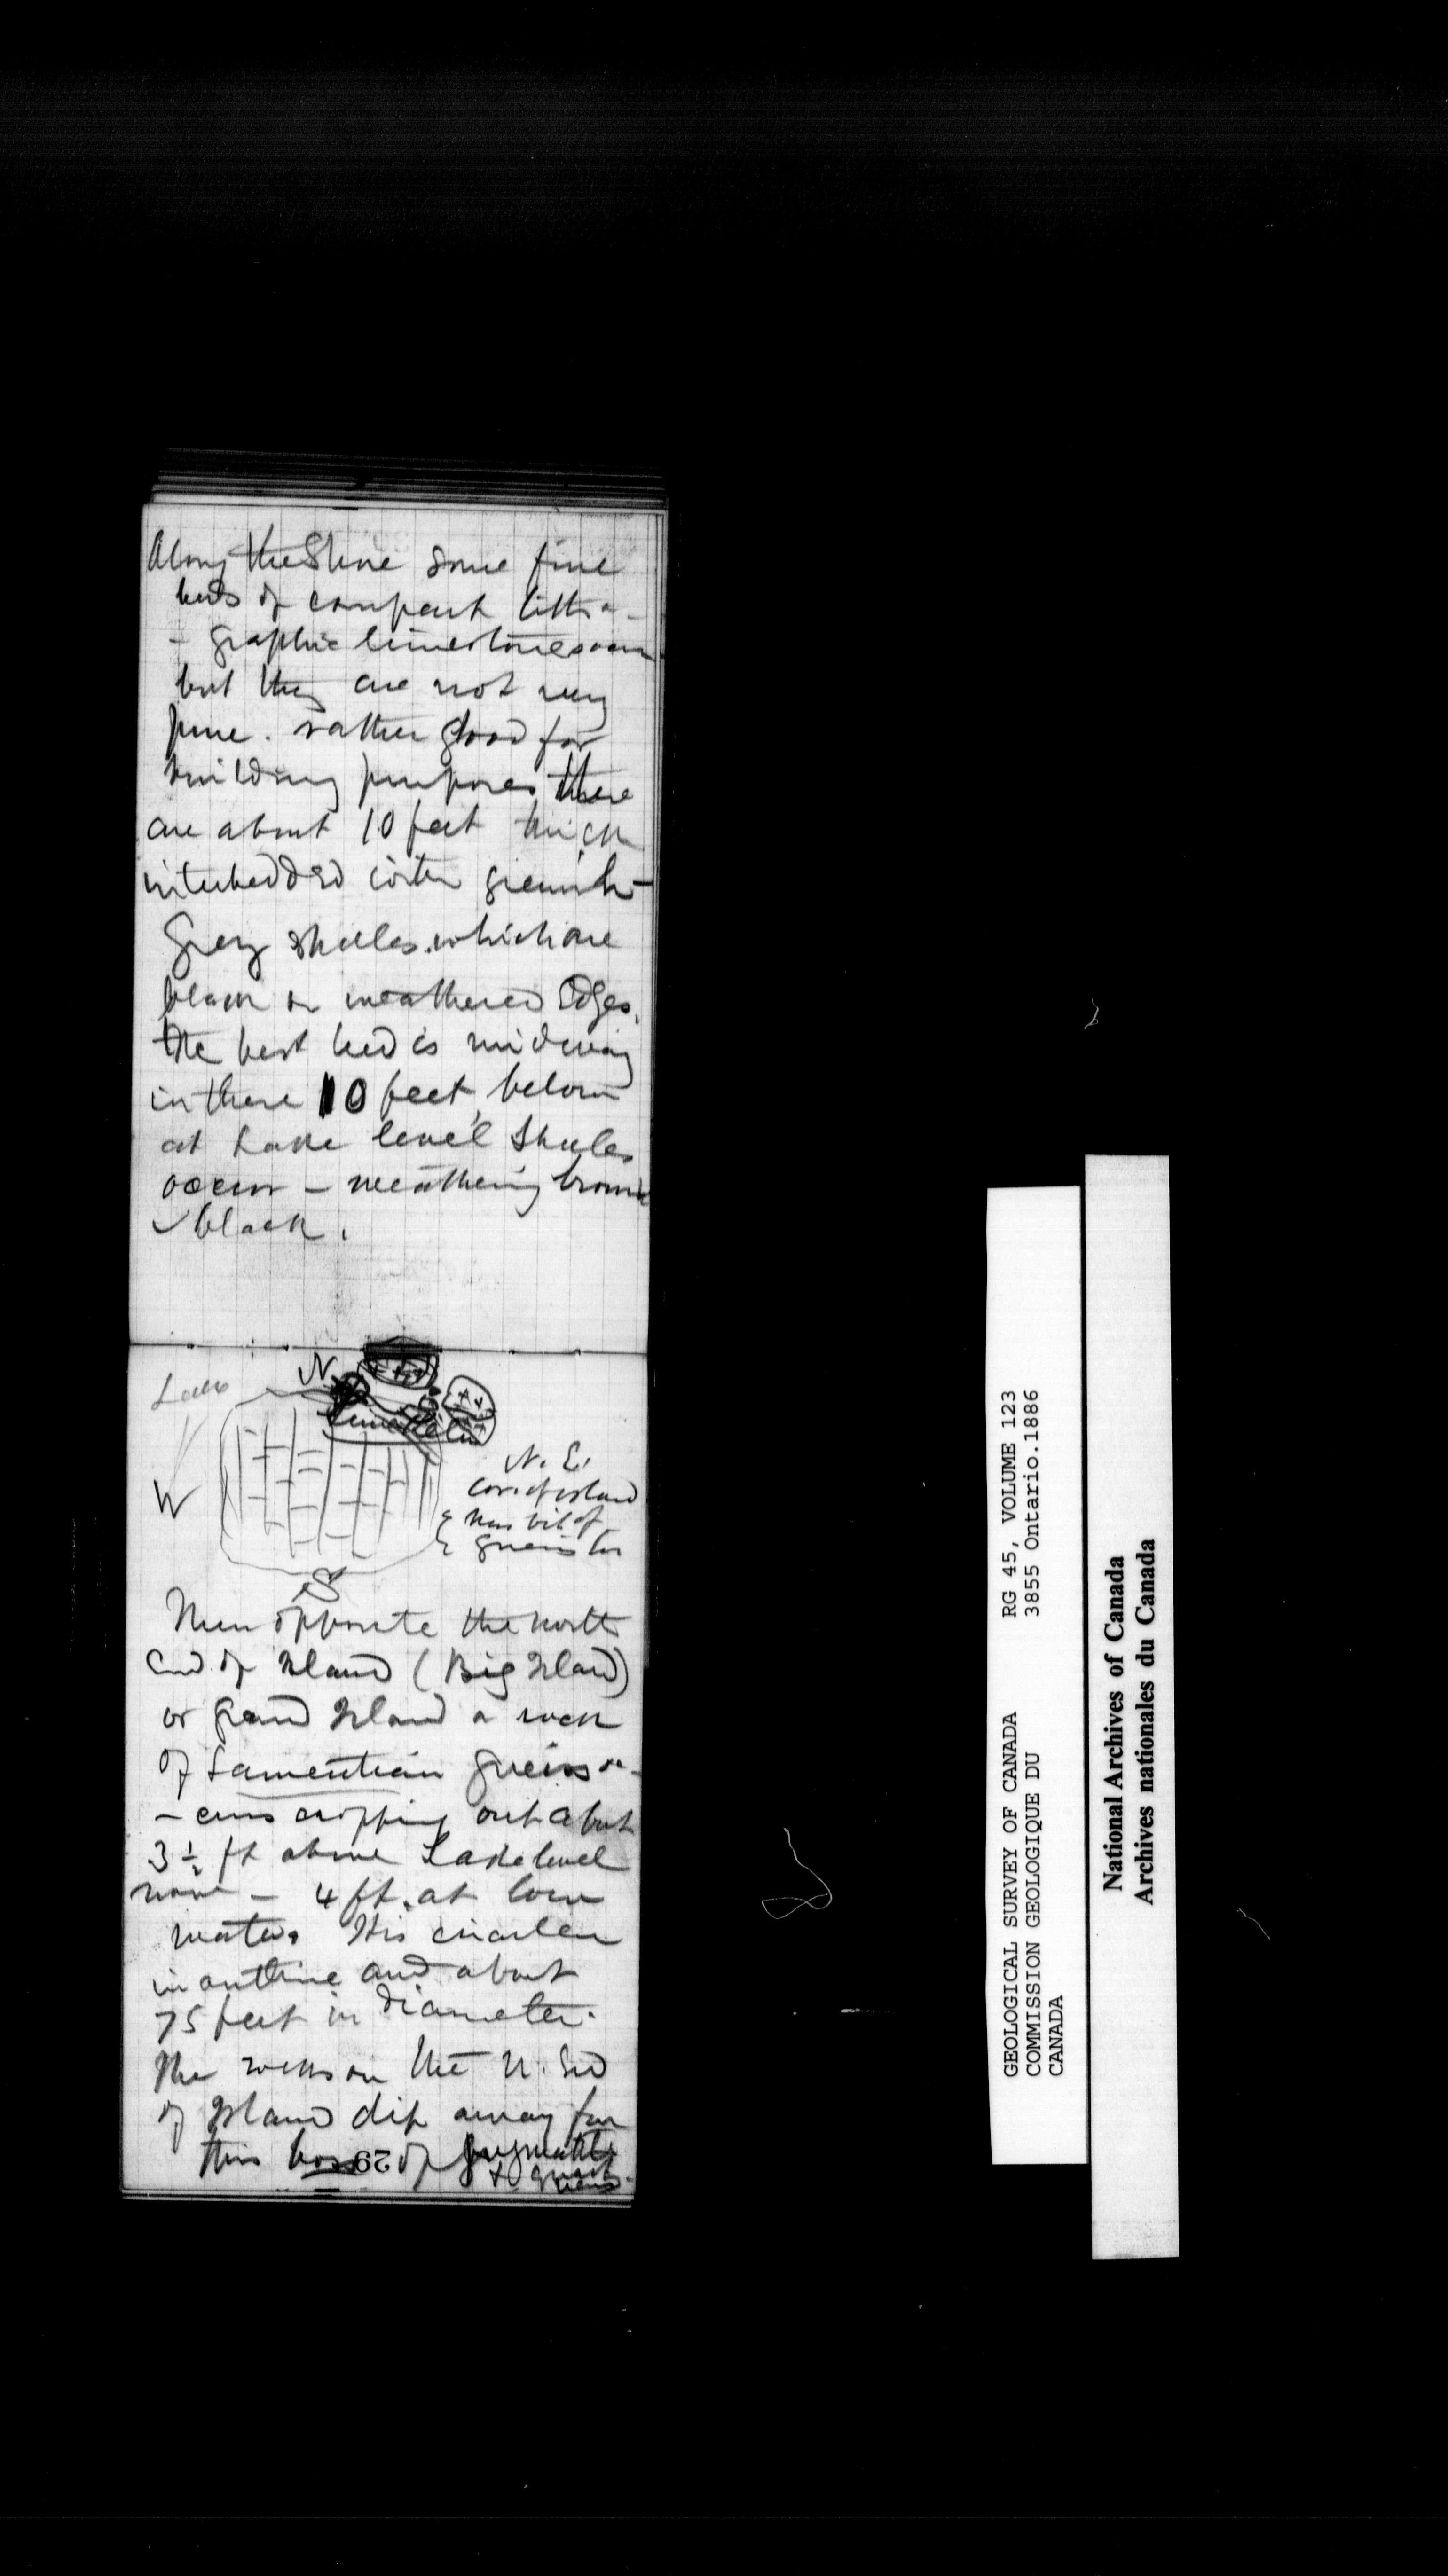 Along the Shore some fine
beds of compact litho-
- graphic limestones occur
but they are not very
pure. rather good for
building purposes there
are about 10 feet thick
interbedded with greenish-
Grey shales which are
black on weathered Edges.
the best bed is midway
in these 10 feet, below
at Lake level Shales
occur - weathering brown
black.
Lake
N
Limestone
W
N. E.
cor. of island
has bit of
gneiss
S
Then opposite the north
End of Island (Big Island)
or Grand Island a rock
of Laurentian gneiss oc-
- curs cropping out about
3 1/2 ft above Lake level
now - 4 ft. at low
water. It is circular
in outline and about
75 feet in diameter.
The rocks on the N. End
of Island dip away from
this boss of pegmatite
29
& gneiss.
GEOLOGICAL SURVEY OF CANADA RG 45, VOLUME 123
COMMISSION GEOLOGIQUE DU 3855 Ontario.1886
CANADA
National Archives of Canada
Archives nationales du Canada